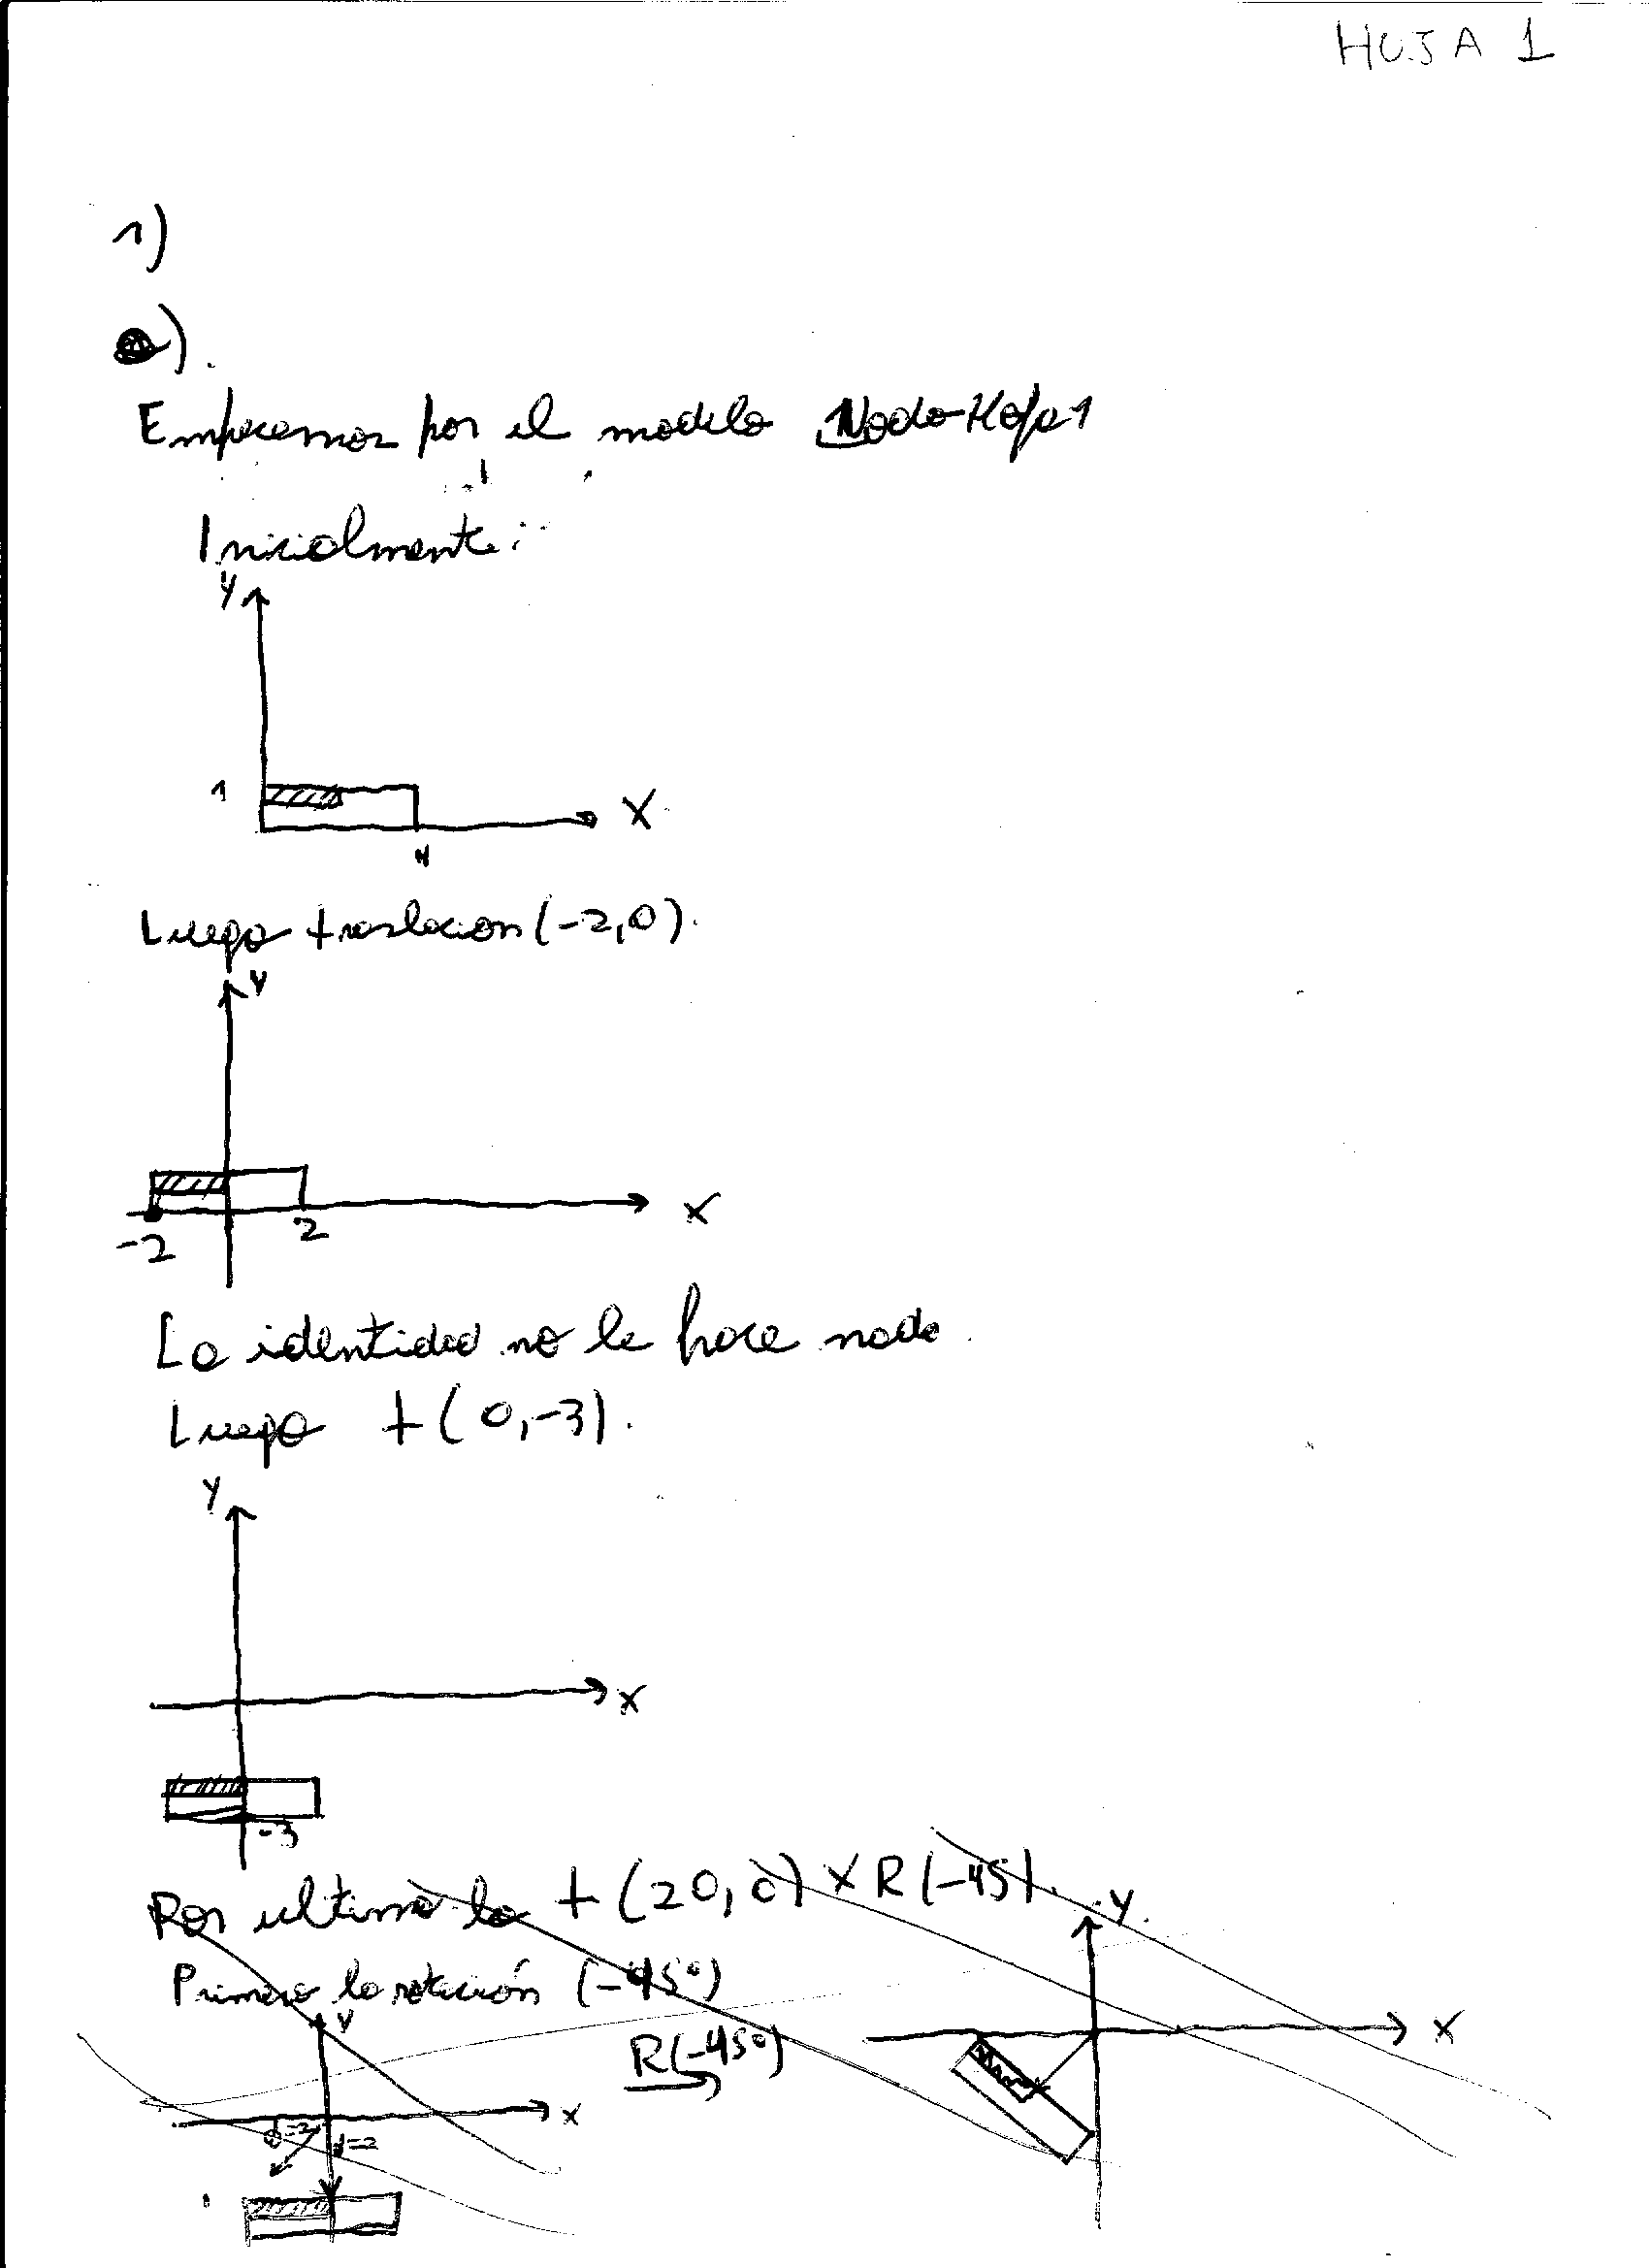 HOJA 1
1)
).
Empecemos por el modelo Nodo-Hoja1
Inicialmente:
Y
1
X
4
Luego traslacion (-2,0).
Y
X
-2
2
La identidad no le hace nada.
Luego t(0,-3).
Y
X
-3
Por ultimo la t(20,0) x R(-45).
Primero la rotación (-45°)
Y
X
d=2
d=2
R(-45°)
Y.
X